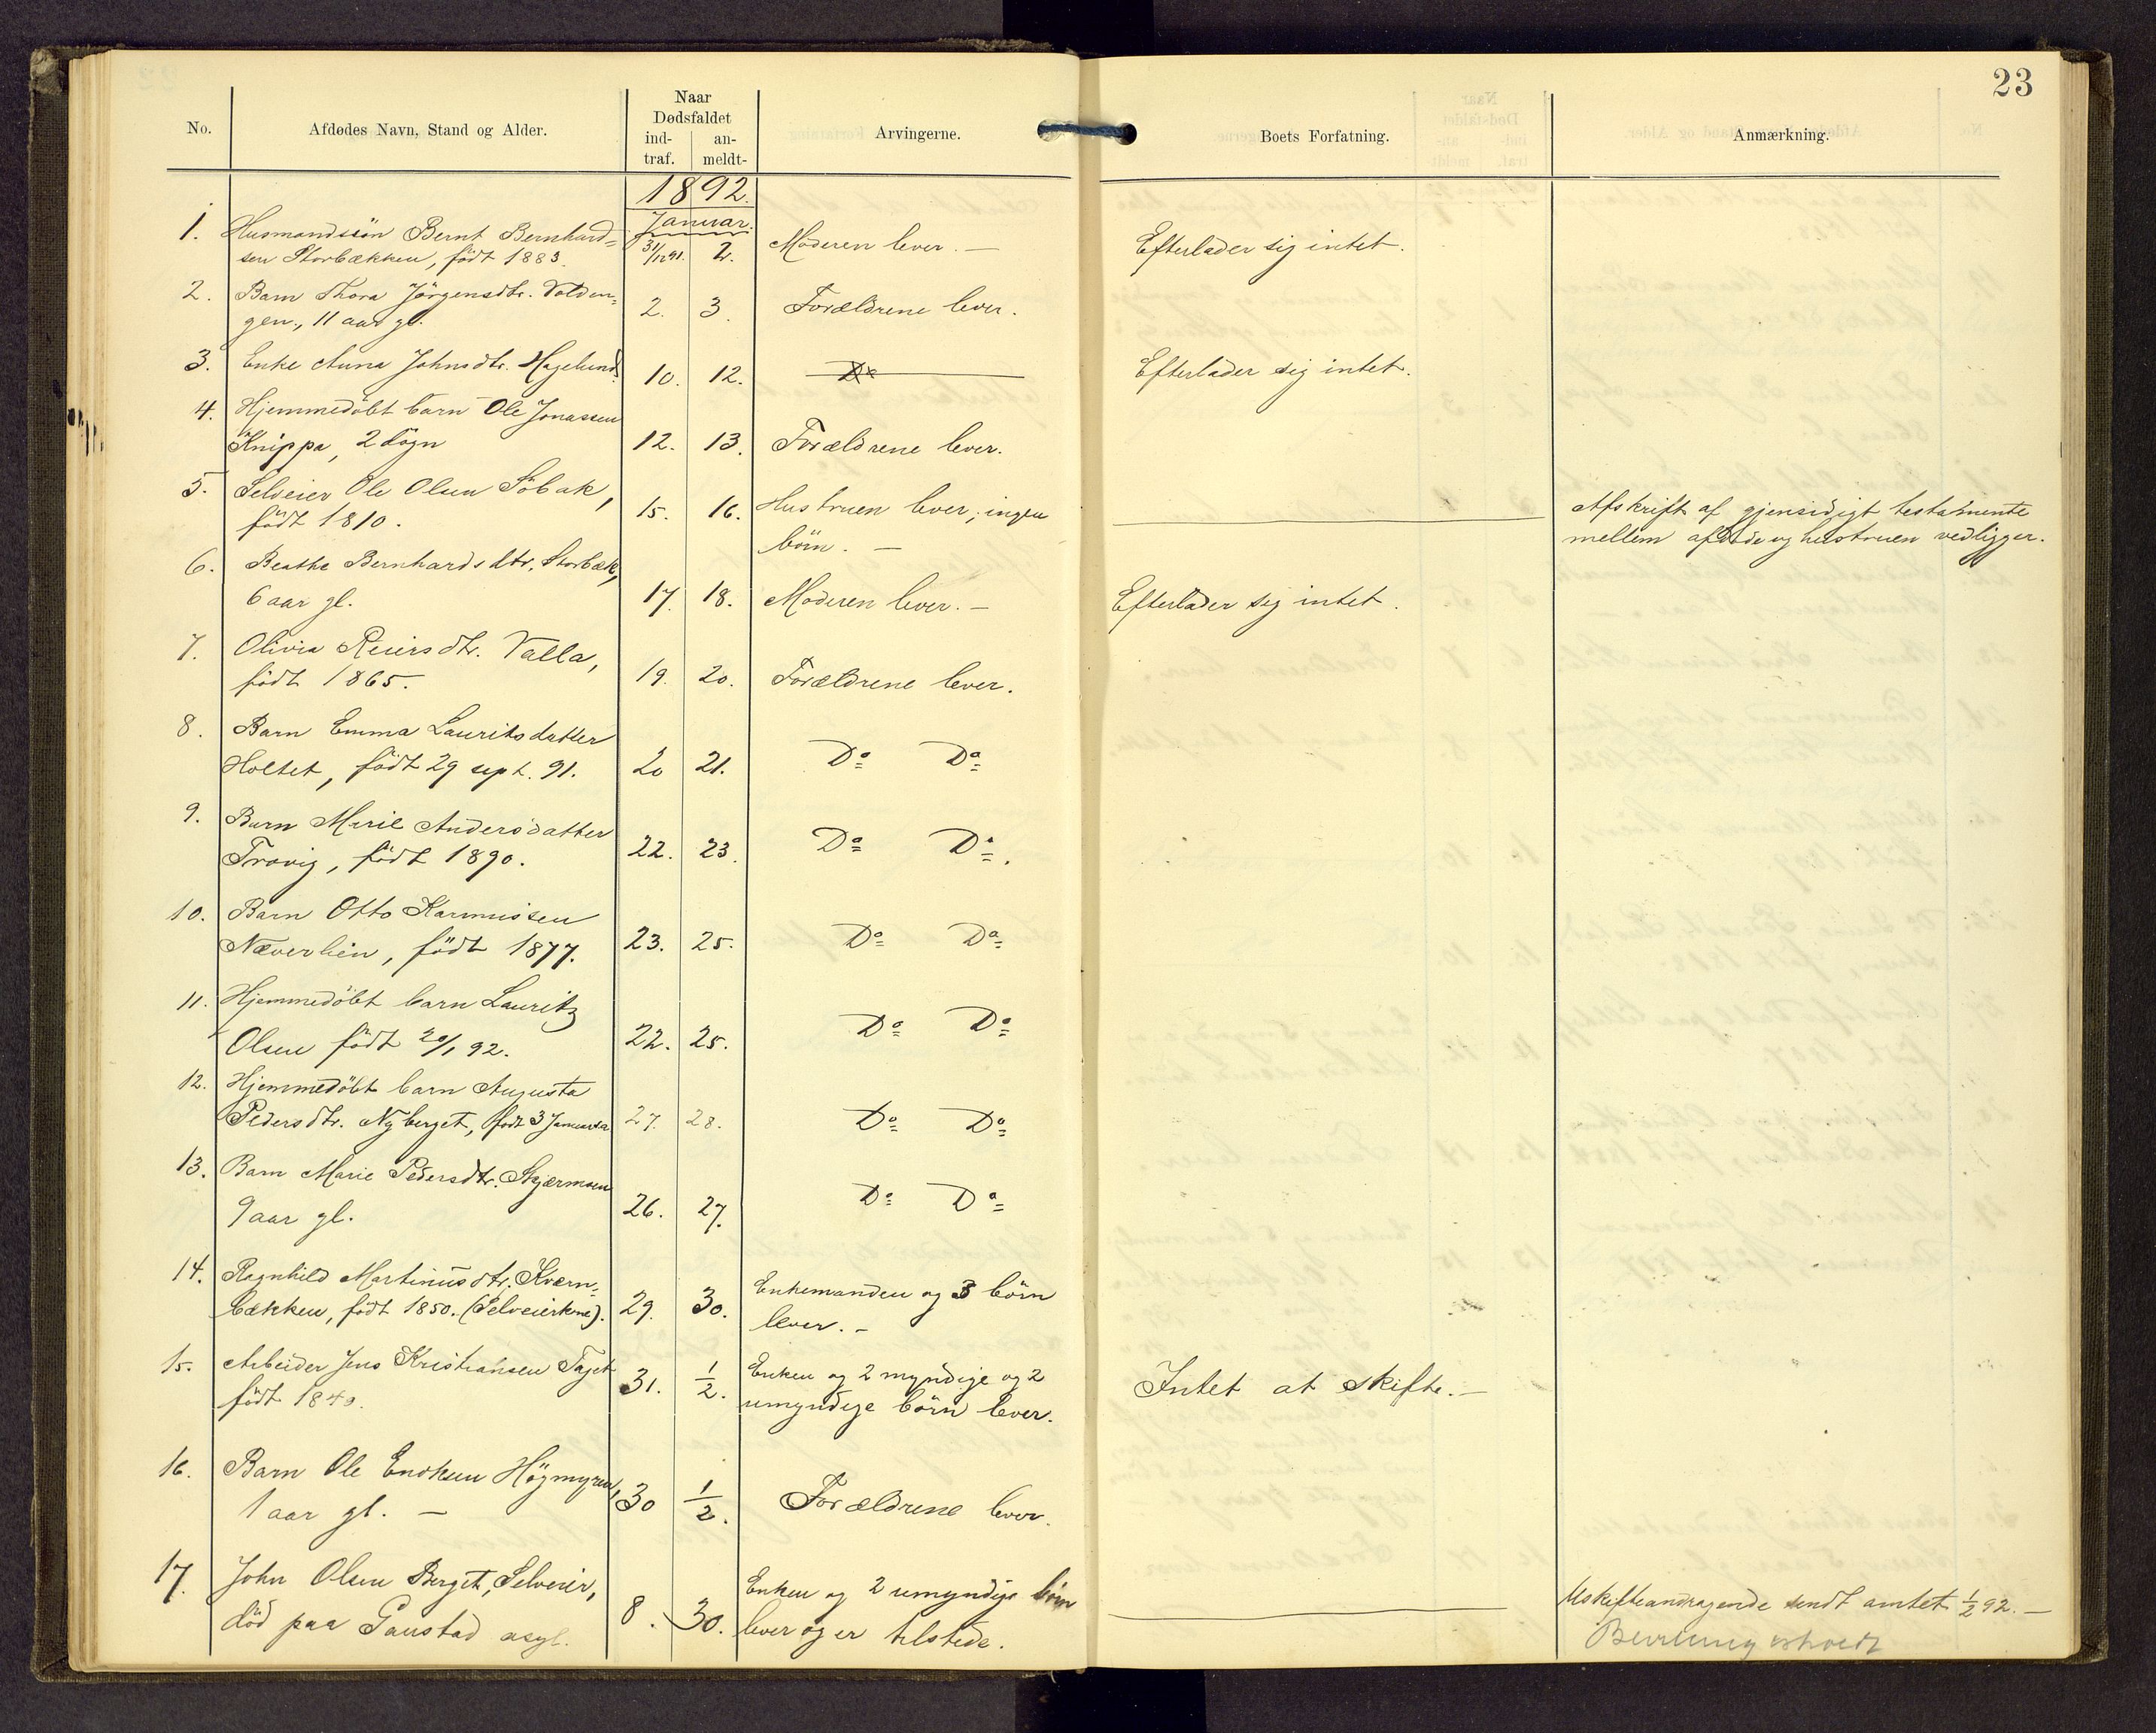 23
No.
Afdødes Navn, Stand og Alder.
Naar
Dødsfaldet
ind-
traf.
an-
meldt-
Arvingerne.
Boets Forfatning.
Anmærkning.
1892.
Januar.
1. Husmandssön Bernt Bernhard= 31/12 91. 2. Moderen lever. — Efterlader sig intet.
sen Storbækken, födt 1883.
2. Barn Thora Jörgensdtr. Volden= 2. 3. Forældrene lever.
gen, 11 aar gl.
3. Enke Anna Johnsdtr. Hagelund. 10. 12. Do Efterlader sig intet.
4. Hjemmedöbt barn Ole Jonassen
Knippa, 2 dögn 12. 13. Forældrene lever.
5. Selveier Ole Olsen Söbak, 15. 16. Hustruen lever; ingen Afskrift af gjensidigt testamente
födt 1810. börn. — mellem afdöde og hustruen vedligger.
6. Beathe Bernhardsdtr. Storbæk,
6 aar gl. 17. 18. Moderen lever. — Efterlader sig intet.
7. Olivia Reiersdtr. Valla,
födt 1865. 19. 20. Forældrene lever.
8. Barn Emma Lauritsdatter
Holtet, födt 29 sept. 91. 20 21. Do Do
9. Barn Marie Andersdatter
Trovig, födt 1890. 22. 23. Do Do.
10. Barn Otto Karmussen
Næverlien, födt 1877. 23. 25. Do Do
11. Hjemmedöbt barn Lauritz
Olsen födt 20/1 92. 22. 25. Do Do
12. Hjemmedöbt barn Augusta
Pedersdtr. Nyberget, födt 3 Januar 27. 28. Do Do
13. Barn Marie Pedersdtr. Skjærmoen
9 aar gl. 26. 27. Do Do
14. Ragnhild Martinusdtr. Kværn= Enkemanden og 3 börn
bækken, födt 1850. (Selveierkone). 29. 30. lever. —
15. Arbeider Jens Kristiansen Taget 31. 1/2. Enken og 2 myndige og 2 Intet at skifte. —
födt 1840. umyndige börn lever.
16. Barn Ole Endresen Högmyren,
1 aar gl. — 30 1/2. Forældrene lever.
17. John Olsen Berget, Selveier, Enken og 2 umyndige börn Uskifteandragende sendt amtet 1/2 92. —
död paa Gaustad asyl. 8. 30. lever og er tilstede. Bevilling